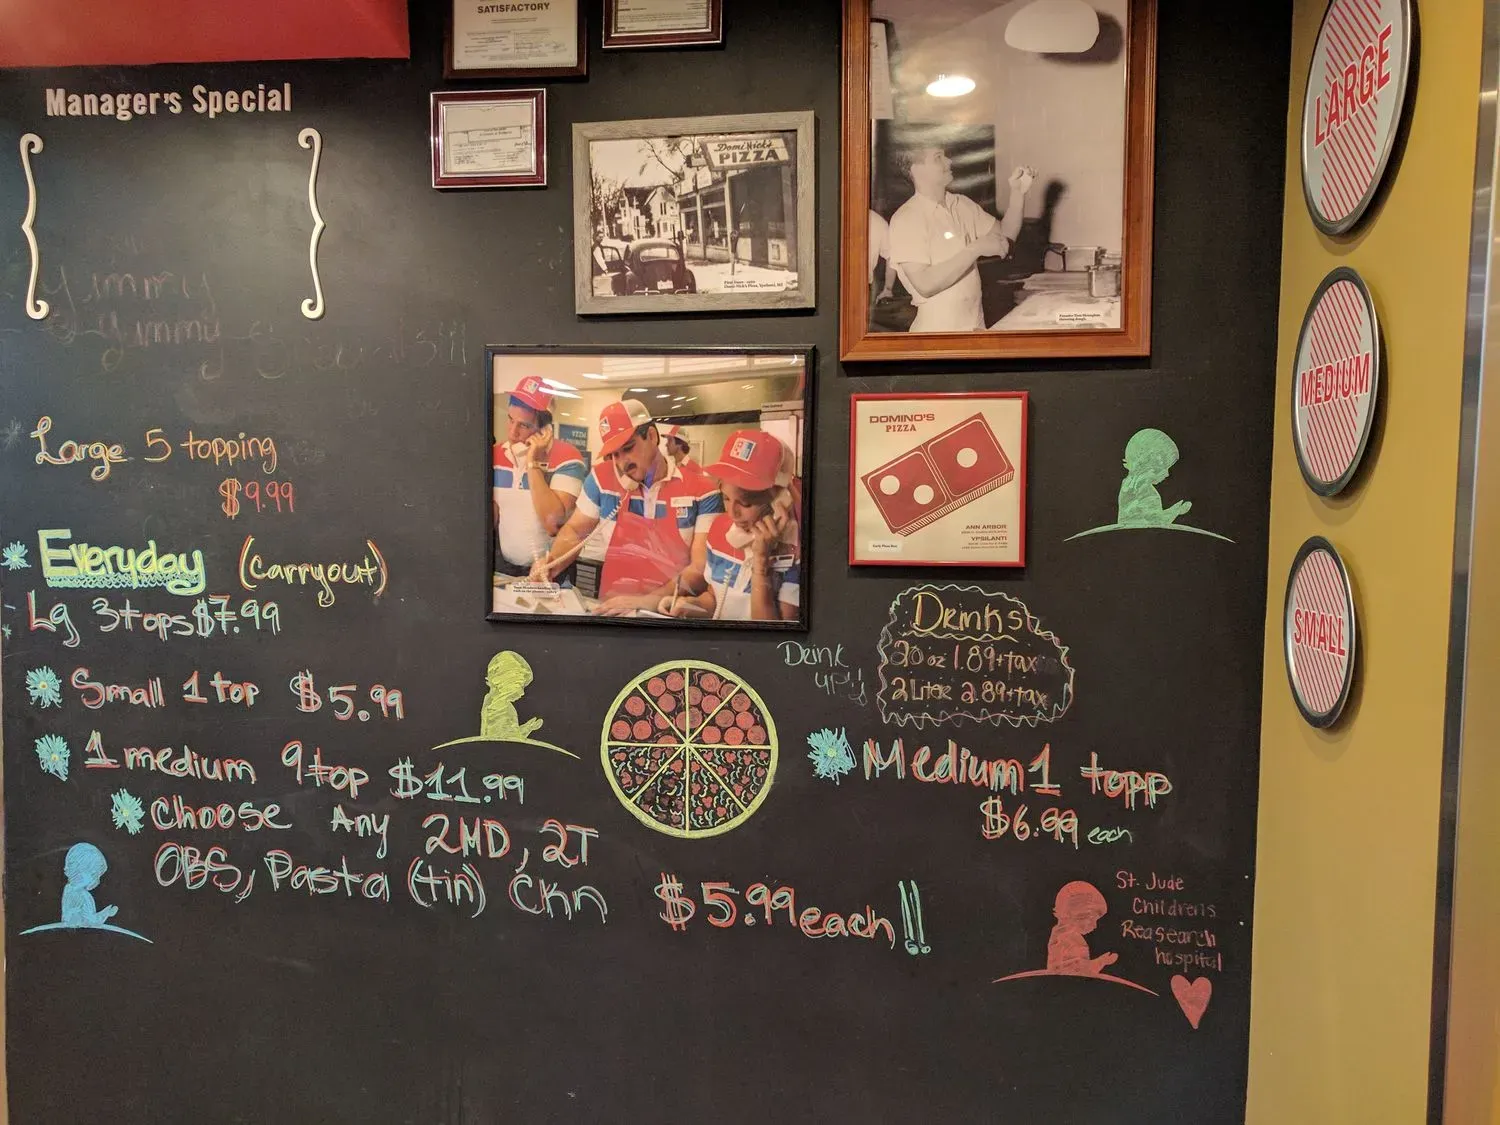 SATISFACTORY
Manager's Special
Yummy
Yummy
Large 5 topping
$9.99
Everyday (carryout)
Lg 3tops $7.99
Small 1 top $5.99
1 medium 9 top $11.99
Choose Any 2MD, 2T
OBS, Pasta (tin) Ckn $5.99 each!!
Domi Nick's
PIZZA
DOMINO'S
PIZZA
ANN ARBOR
YPSILANTI
Early Pizza Box
Drink
up'y
Drinks
20 oz 1.89+tax
2 Liter 2.89+tax
Medium 1 topp
$6.99 each
St. Jude
Childrens
Reasearch
hospital
LARGE
MEDIUM
SMALL